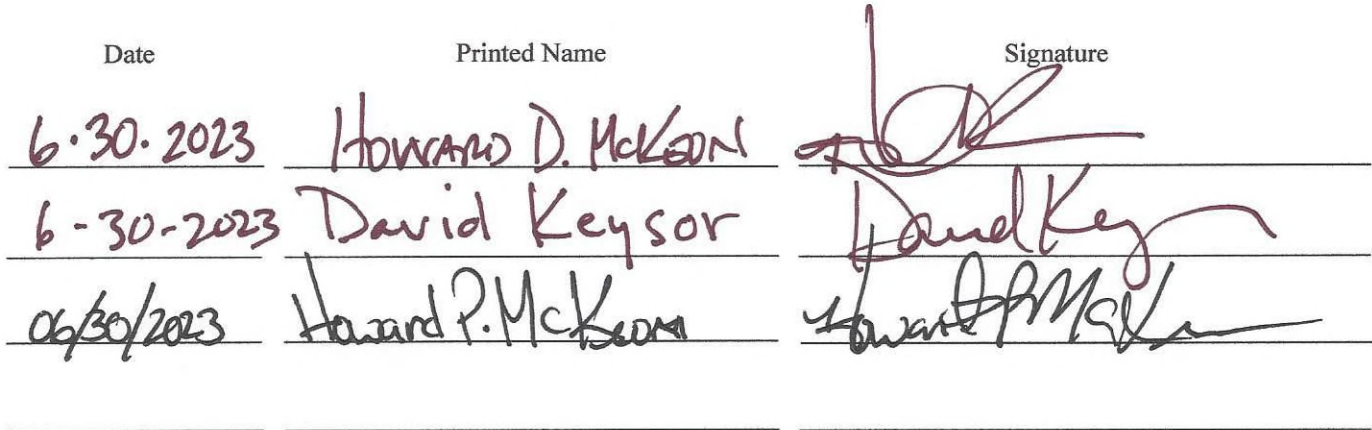 Date Printed Name Signature
6·30·2023 HOWARD D. McKEON
6-30-2023 David Keysor David Key
06/30/2023 Howard P. McKeon Howard P McK